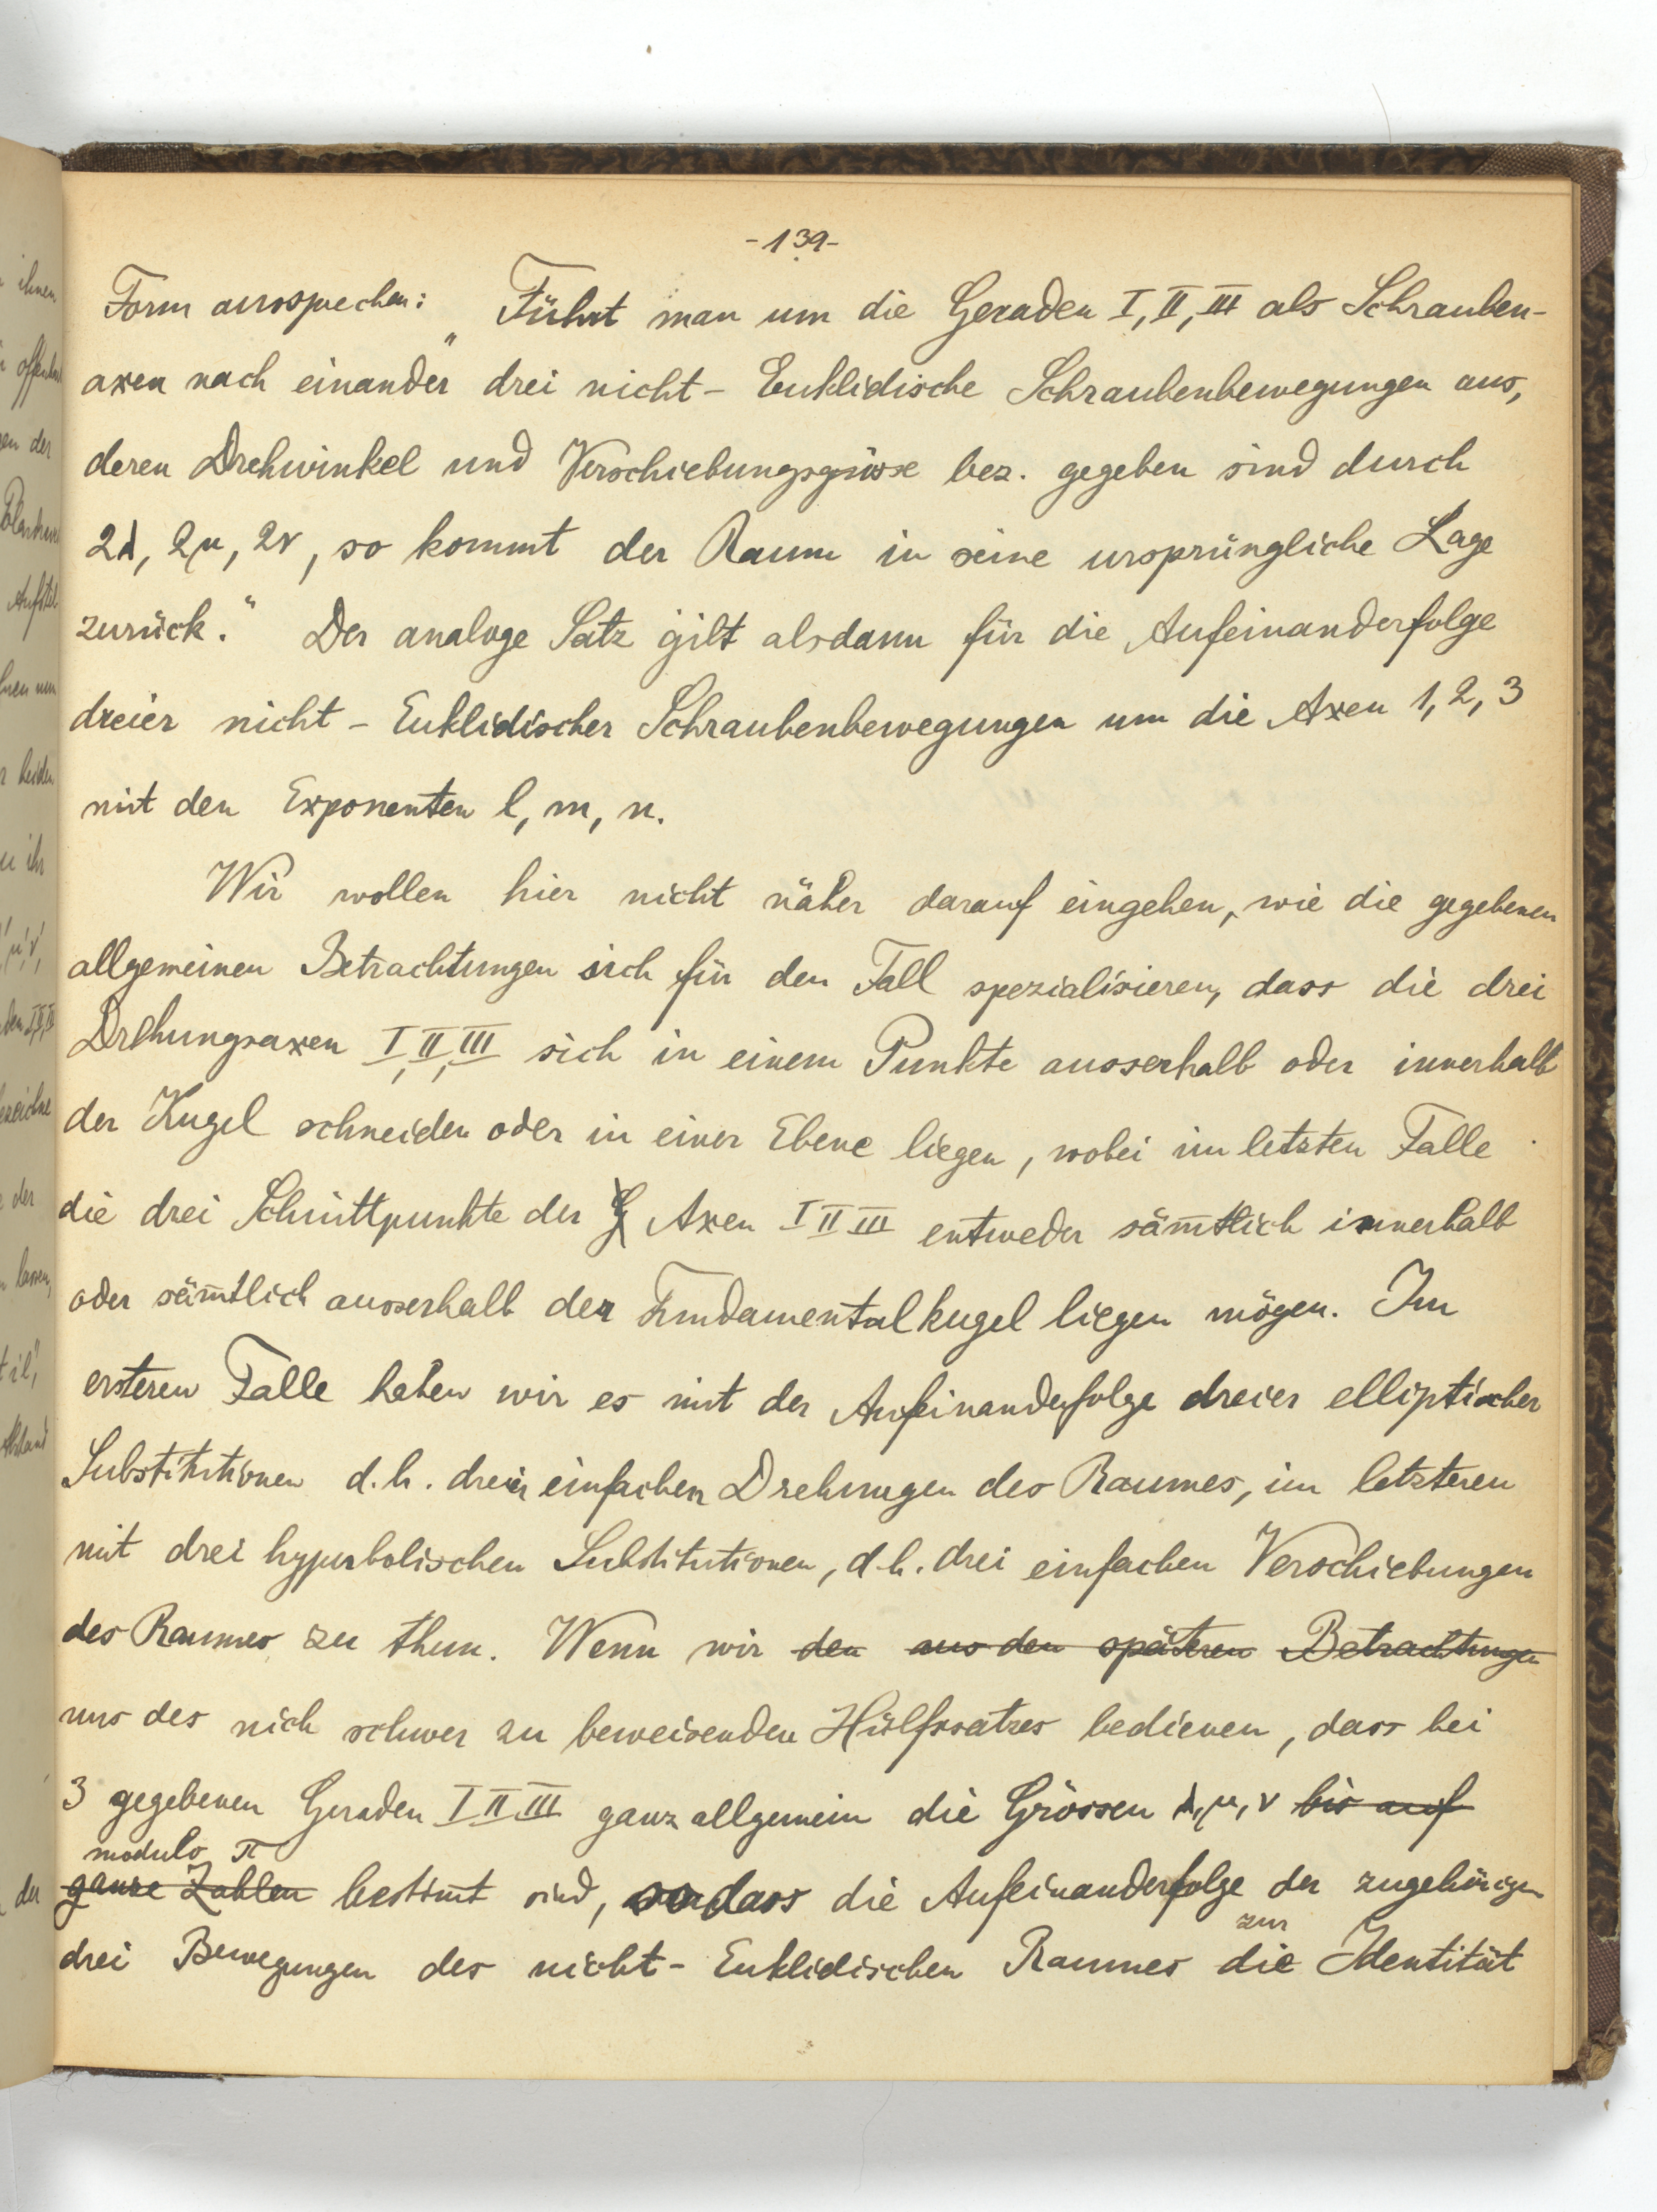 -139-
Form aussprechen: „Führt man um die Geraden I, II, III als Schrauben-
axen nach einander drei nicht-Euklidische Schraubenbewegungen aus,
deren Drehwinkel und Verschiebungsgrösse bez. gegeben sind durch
2λ, 2μ, 2ν, so kommt der Raum in seine ursprüngliche Lage
zurück.“ Der analoge Satz gilt alsdann für die Aufeinanderfolge
dreier nicht-Euklidischer Schraubenbewegungen um die Axen 1, 2, 3
mit den Exponenten l, m, n.
Wir wollen hier nicht näher darauf eingehen, wie die gegebenen
allgemeinen Betrachtungen sich für den Fall spezialisieren, dass die drei
Drehungsaxen I, II, III sich in einem Punkte ausserhalb oder innerhalb
der Kugel schneiden oder in einer Ebene liegen, wobei im letzten Falle
die drei Schnittpunkte der G Axen I II III entweder säm̅tlich innerhalb
oder säm̅tlich ausserhalb der Fundamentalkugel liegen mögen. Im
ersteren Falle haben wir es mit der Aufeinanderfolge dreier elliptischer
Substitutionen d.h. dreier einfachen Drehungen des Raumes, im letzteren
mit drei hyperbolischen Substitutionen, d.h. drei einfachen Verschiebungen
des Raumes zu thun. Wenn wir den aus den späteren Betrachtungen
uns des nich schwer zu beweisenden Hülfssatzes bedienen, dass bei
3 gegebenen Geraden I II III ganz allgemein die Grössen λ, μ, ν bis auf
modulo π
ganze Zahlen bestim̅t sind, sodass die Aufeinanderfolge der zugehörigen
zur
drei Bewegungen des nicht-Euklidischen Raumes die Identität